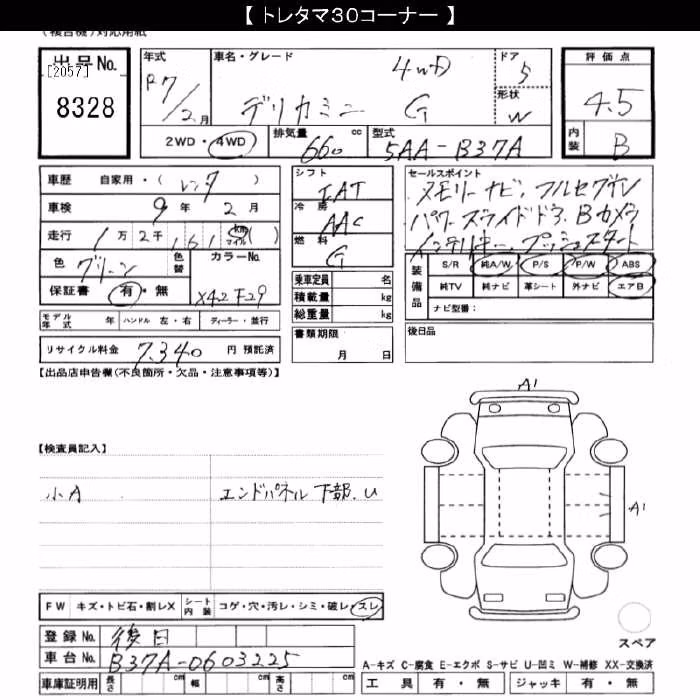 【 トレタマ３０コーナー 】
(複合機)対応用紙
出品No.
[2057]
8328
年式
R7/2月
車名・グレード
4WD
デリカミニ G
ドア
5
形状
W
評価点
4.5
内装
B
2WD・4WD
排気量 660 cc
型式 5AA-B37A
車歴 自家用・( レンタ )
車検 9年 2月
走行 1万2千 km マイル ( )
色 グリーン
色替
カラーNo.
X42 F29
保証書 有・無
シフト
IAT
冷房
AAC
燃料
G
乗車定員 名
積載量 kg
総重量 kg
セールスポイント
メモリーナビ、フルセグTV
パワースライドドア、Bカメラ
インテリキー、プッシュスタート
装備品
S/R 純A/W P/S P/W ABS
純TV 純ナビ 革シート 外ナビ エアB
ナビ型番：
モデル年式 年 ハンドル 左・右 ディーラー・並行
リサイクル料金 7,340 円 預託済
書類期限
月 日
後日品
【出品店申告欄(不良箇所・欠品・注意事項等)】
A1
【検査員記入】
小A
エンドパネル下部、U
A1
FW キズ・トビ石・割レX シート内装 コゲ・穴・汚レ・シミ・破レ・スレ
登録No. 後日
車台No. B37A-0603225
車庫証明用 長さ cm 幅 cm 高さ cm
スペア
A-キズ C-腐食 E-エクボ S-サビ U-凹ミ W-補修 XX-交換済
工具 有・無 ジャッキ 有・無